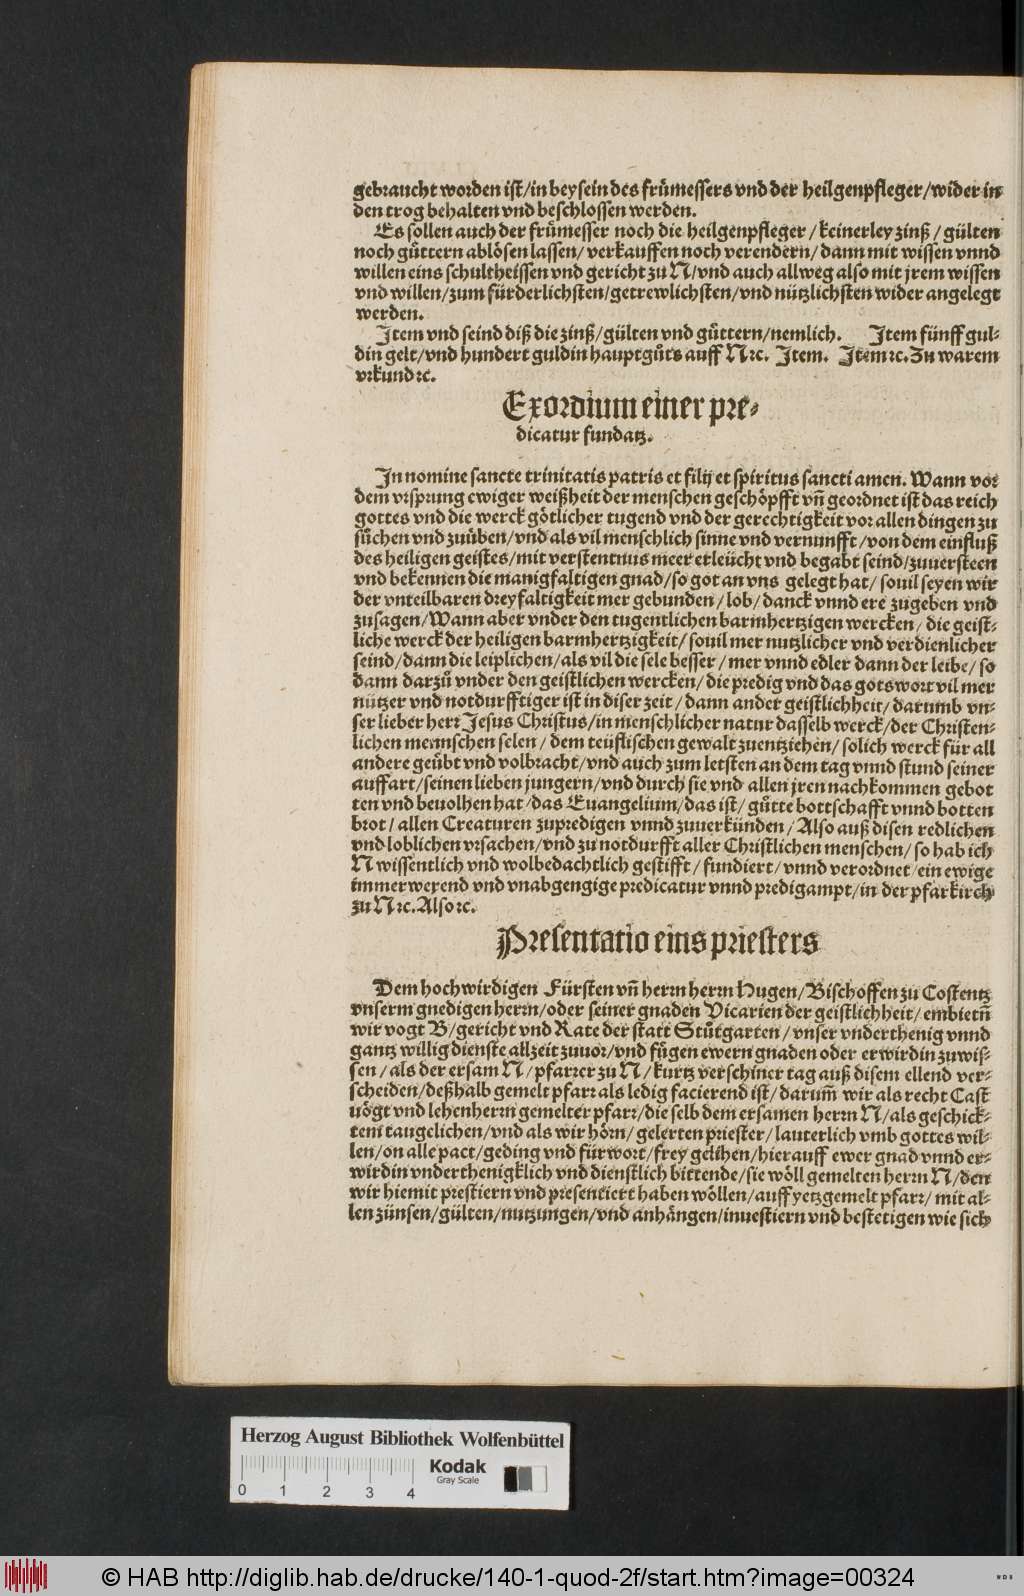 gebraucht worden ist/in beysein des frůmessers vnd der heilgenpfleger/wider in
den trog behalten vnd beschlossen werden.
Es sollen auch der frůmesser noch die heilgenpfleger/keinerley zinß/gülten
noch gůttern ablösen lassen/verkauffen noch verendern/dann mit wissen vnnd
willen eins schultheissen vnd gericht zu N/vnd auch allweg also mit jrem wissen
vnd willen/zum fürderlichsten/getrewlichsten/vnd nützlichsten wider angelegt
werden.
Item vnd seind diß die zinß/gülten vnd gůttern/nemlich. Item fünff gul⸗
din gelt/vnd hundert guldin hauptgůts auff N ꝛc. Item. Item ꝛc. Zu warem
vrkund ꝛc.
Exordium einer pre⸗
dicatur fundatz.
In nomine sancte trinitatis patris et filij et spiritus sancti amen. Wann vor
dem vrsprung ewiger weißheit der menschen geschöpfft vñ geordnet ist das reich
gottes vnd die werck götlicher tugend vnd der gerechtigkeit vor allen dingen zu
sůchen vnd zuüben/vnd als vil menschlich sinne vnd vernunfft/von dem einfluß
des heiligen geistes/mit verstentnus meer erleücht vnd begabt seind/zuuersteen
vnd bekennen die manigfaltigen gnad/so got an vns gelegt hat/souil seyen wir
der vnteilbaren dreyfaltigkeit mer gebunden/lob/danck vnnd ere zugeben vnd
zusagen/Wann aber vnder den tugentlichen barmhertzigen wercken/die geist⸗
liche werck der heiligen barmhertzigkeit/souil mer nutzlicher vnd verdienlicher
seind/dann die leiplichen/als vil die sele besser/mer vnnd edler dann der leibe/so
dann darzů vnder den geistlichen wercken/die predig vnd das gotswort vil mer
nützer vnd notdurfftiger ist in diser zeit/dann ander geistlichheit/darumb vn⸗
ser lieber herr Jesus Christus/in menschlicher natur dasselb werck/der Christen⸗
lichen mennschen selen/dem teüflischen gewalt zuentziehen/solich werck für all
andere geübt vnd volbracht/vnd auch zum letsten an dem tag vnnd stund seiner
auffart/seinen lieben jungern/vnd durch sie vnd allen jren nachkommen gebot
ten vnd beuolhen hat/das Euangelium/das ist/gůtte bottschafft vnnd botten
brot/allen Creaturen zupredigen vnnd zuuerkünden/Also auß disen redlichen
vnd loblichen vrsachen/vnd zu notdurfft aller Christlichen menschen/so hab ich
N wissentlich vnd wolbedachtlich gestifft/fundiert/vnnd verordnet/ein ewige
immerwerend vnd vnabgengige predicatur vnnd predigampt/in der pfarkirch
zu N ꝛc. Also ꝛc.
Presentatio eins priesters
Dem hochwirdigen Fürsten vñ herrn herrn Hugen/Bischoffen zu Costentz
vnserm gnedigen herrn/oder seiner gnaden Vicarien der geistlichheit/embietñ
wir vogt B/gericht vnd Rate der statt Stůtgarten/vnser vnderthenig vnnd
gantz willig dienste allzeit zuuor/vnd fügen ewern gnaden oder erwirdin zuwis⸗
sen/als der ersam N/pfarrer zu N/kurtz verschiner tag auß disem ellend ver⸗
scheiden/deßhalb gemelt pfarr als ledig facierend ist/darum̃ wir als recht Cast
uögt vnd lehenherrn gemelter pfarr/die selb dem ersamen herrn N/als geschick⸗
tem taugelichen/vnd als wir hörn/gelerten priester/lauterlich vmb gottes wil⸗
len/on alle pact/geding vnd fürwort/frey gelihen/hierauff ewer gnad vnnd er⸗
wirdin vnderthenigklich vnd dienstlich bittende/sie wöll gemelten herrn N/den
wir hiemit prestiern vnd presentiert haben wöllen/auff yetzgemelt pfarr/mit al⸗
len zünsen/gülten/nutzungen/vnd anhängen/inuestiern vnd bestetigen wie sich
Herzog August Bibliothek Wolfenbüttel
Kodak
Gray Scale
0 1 2 3 4
© HAB http://diglib.hab.de/drucke/140-1-quod-2f/start.htm?image=00324